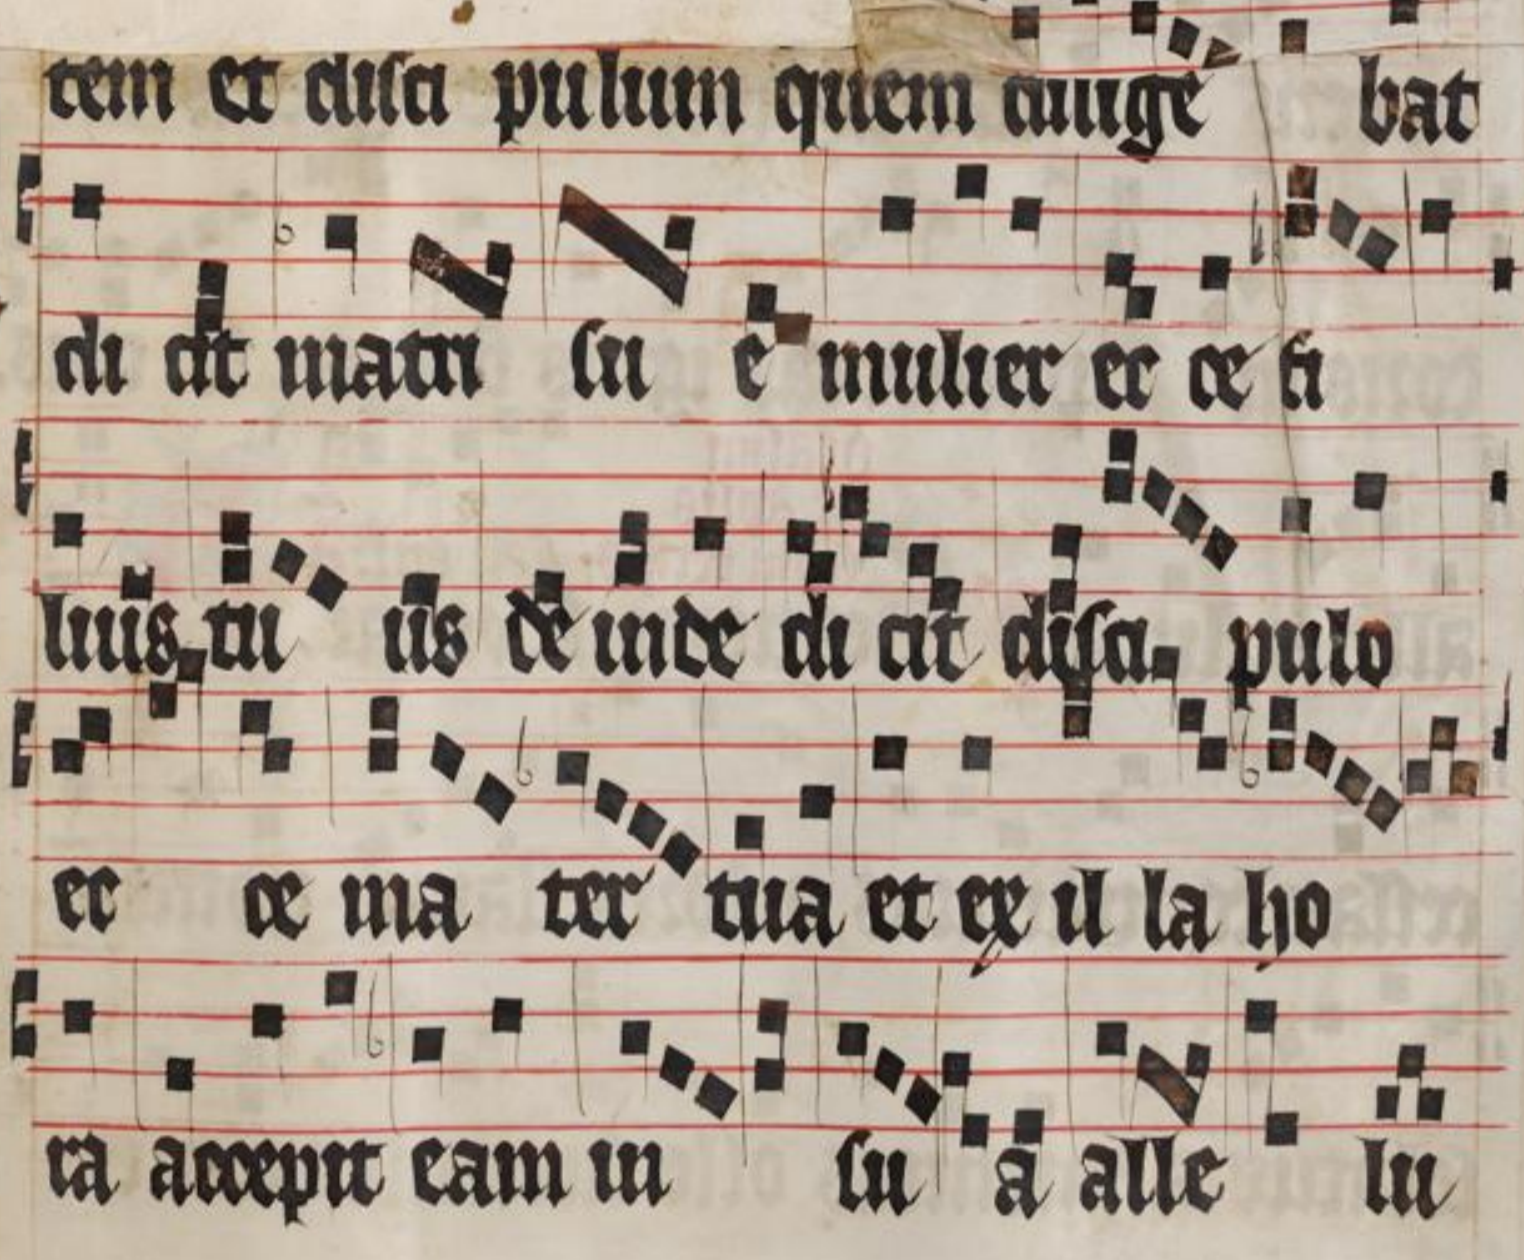 tem et disci pulum quem dilige bat
di cit matri su e mulier ec ce fi
lius tu us de inde di cit disci pulo
ec ce ma ter tua et ex il la ho
ra accepit eam in su a alle lu